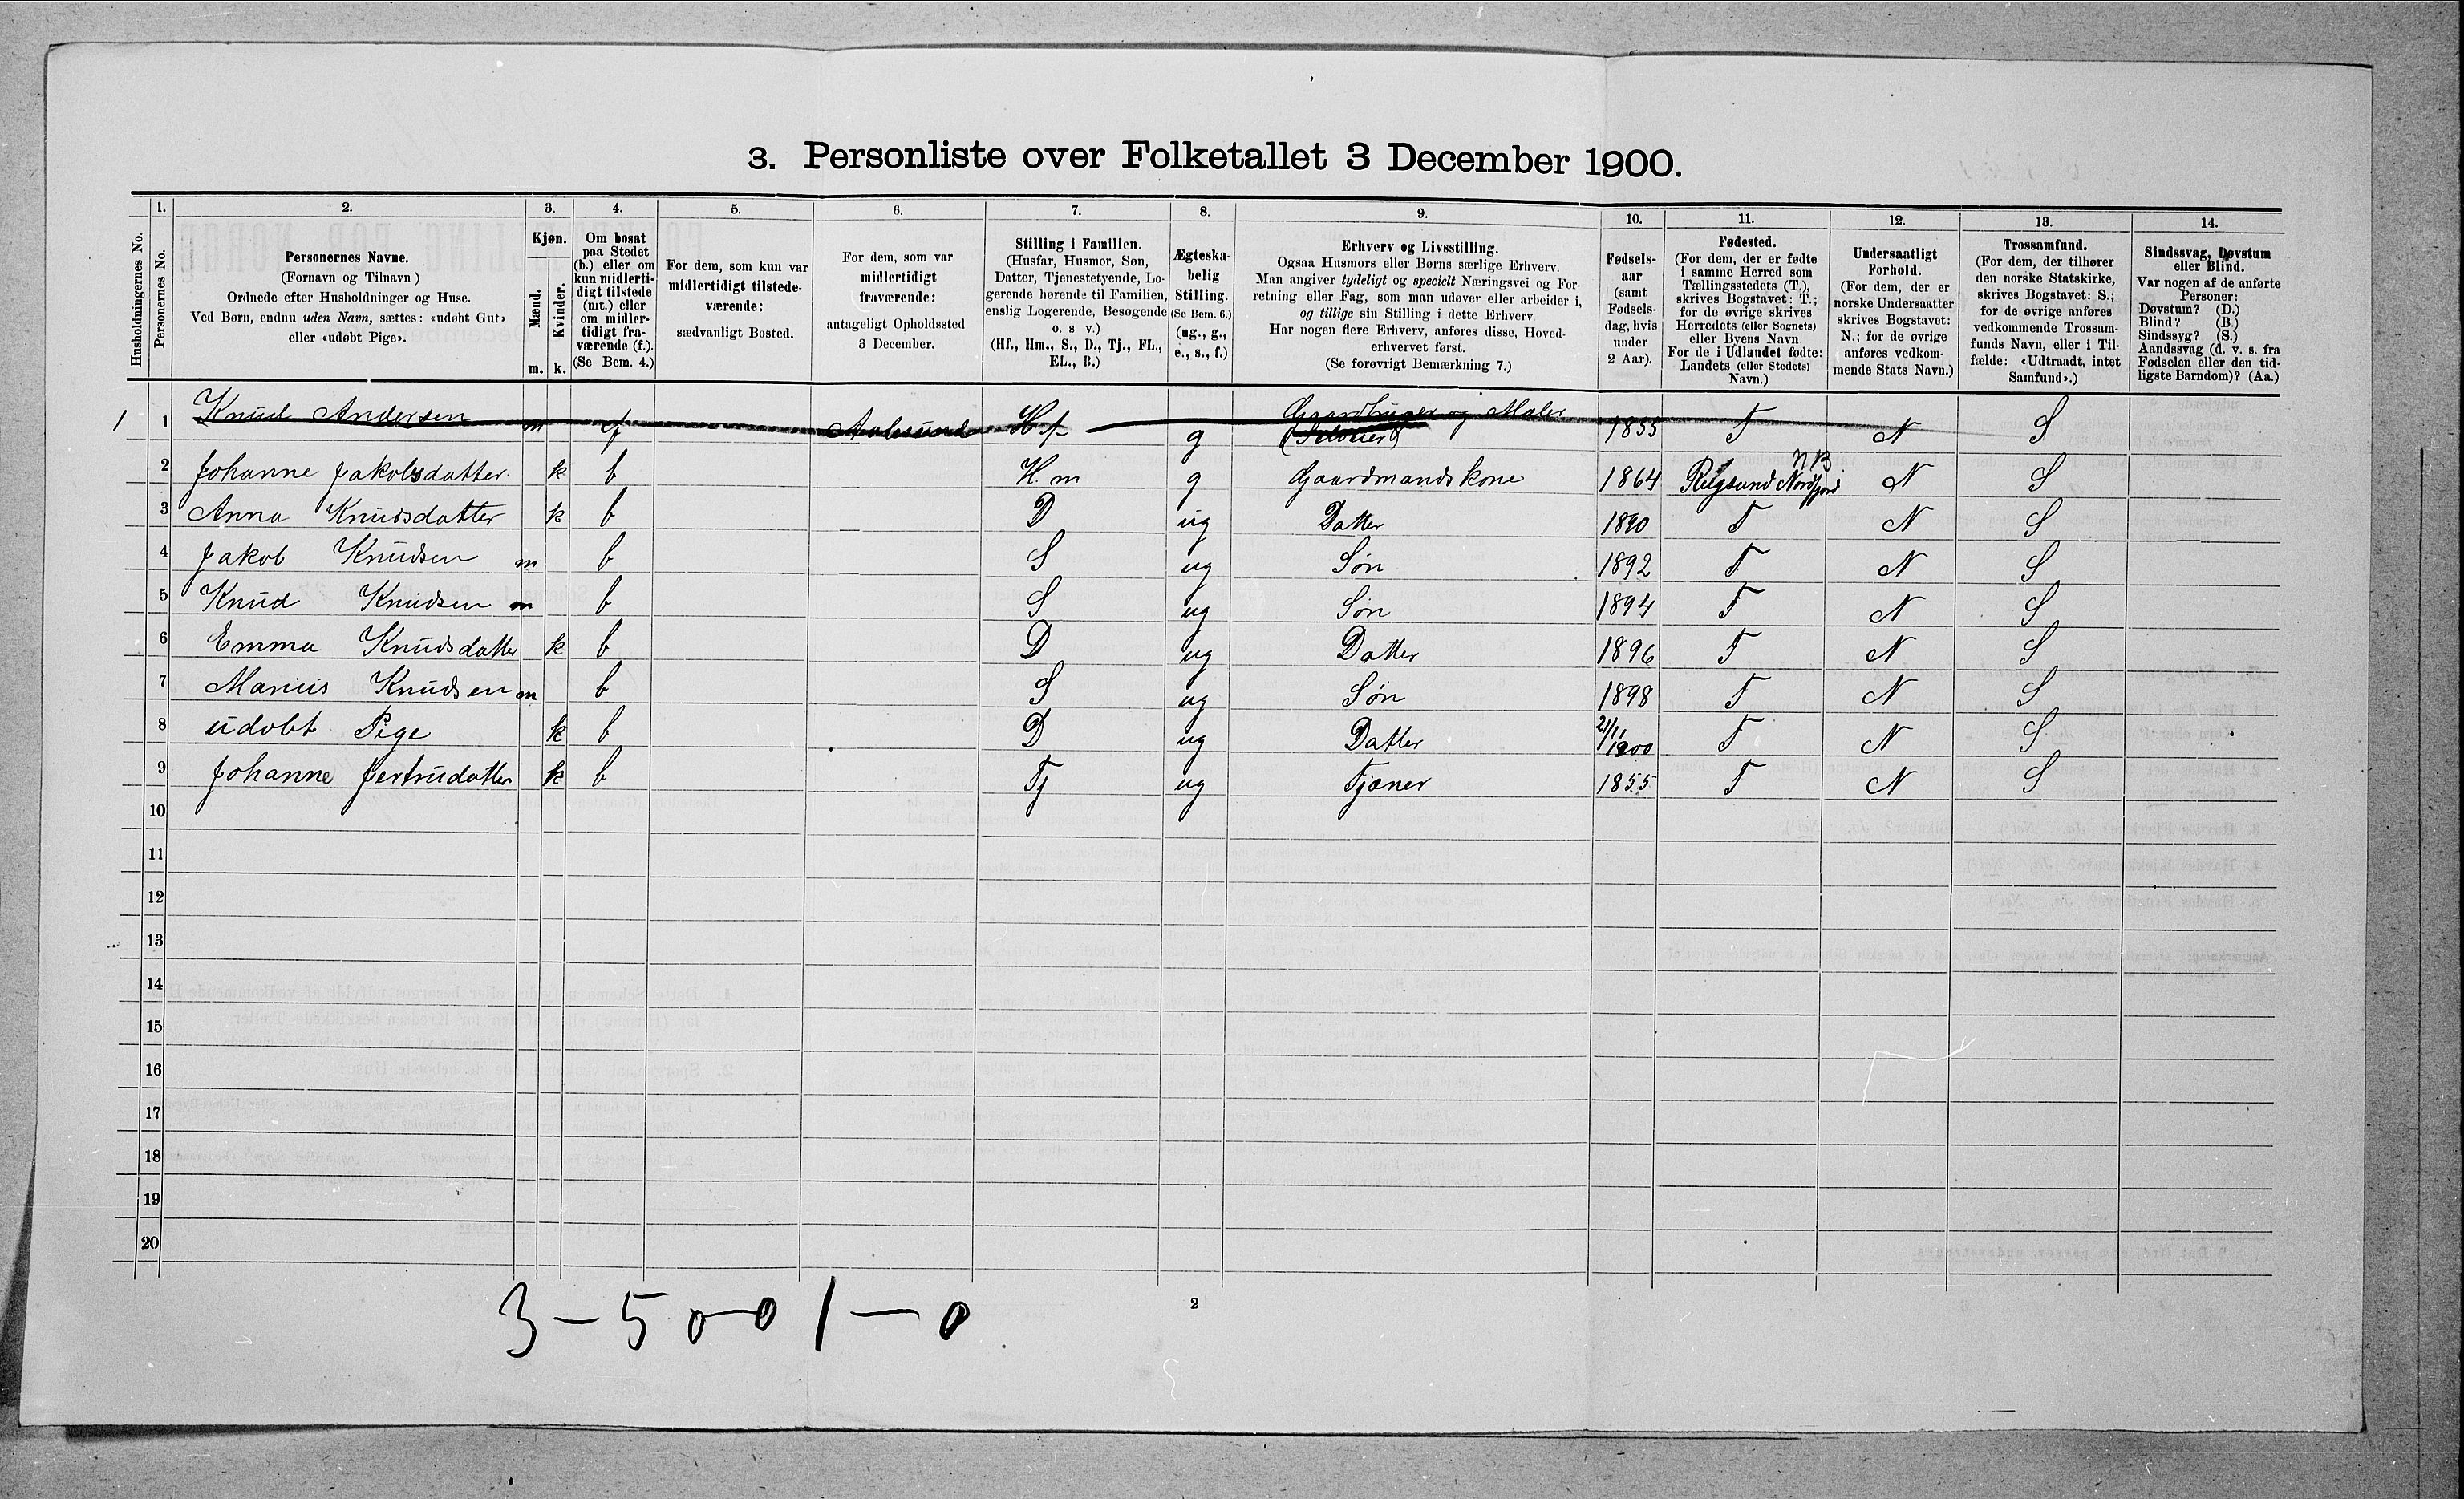 3. Personliste over Folketallet 3 December 1900.
1. 2. 3. 4. 5. 6. 7. 8. 9. 10. 11. 12. 13. 14.
Husholdningernes No.
Personernes No.
Personernes Navne.
(Fornavn og Tilnavn)
Ordnede efter Husholdninger og Huse.
Ved Børn, endnu uden Navn, sættes: «udøbt Gut»
eller «udøbt Pige».
Kjøn.
Mænd.
Kvinder.
m. k.
Om bosat
paa Stedet
(b.) eller om
kun midlerti-
digt tilstede
(mt.) eller
om midler-
tidigt fra-
værende (f.).
(Se Bem. 4.)
For dem, som kun var
midlertidigt tilstede-
værende:
sædvanligt Bosted.
For dem, som var
midlertidigt
fraværende:
antageligt Opholdssted
3 December.
Stilling i Familien.
(Husfar, Husmor, Søn,
Datter, Tjenestetyende, Lo-
gerende hørende til Familien,
enslig Logerende, Besøgende
o. s v.)
(Hf., Hm., S., D., Tj., FL.,
EL., B.)
Ægteska-
belig
Stilling.
(Se Bem. 6.)
(ug., g.,
e., s., f.)
Erhverv og Livsstilling.
Ogsaa Husmors eller Børns særlige Erhverv.
Man angiver tydeligt og specielt Næringsvei og For-
retning eller Fag, som man udøver eller arbeider i,
og tillige sin Stilling i dette Erhverv.
Har nogen flere Erhverv, anføres disse, Hoved-
erhvervet først.
(Se forøvrigt Bemærkning 7.)
Fødsels-
aar
(samt
Fødsels-
dag, hvis
under
2 Aar).
Fødested.
(For dem, der er fødte
i samme Herred som
Tællingsstedets (T.),
skrives Bogstavet: T.;
for de øvrige skrives
Herredets (eller Sognets)
eller Byens Navn.
For de i Udlandet fødte:
Landets (eller Stedets)
Navn.)
Undersaatligt
Forhold.
(For dem, der er
norske Undersaatter
skrives Bogstavet:
N.; for de øvrige
anføres vedkom-
mende Stats Navn.)
Trossamfund.
(For dem, der tilhører
den norske Statskirke,
skrives Bogstavet: S.;
for de øvrige anføres
vedkommende Trossam-
funds Navn, eller i Til-
fælde: «Udtraadt, intet
Samfund».)
Sindssvag, Døvstum
eller Blind.
Var nogen af de anførte
Personer:
Døvstum? (D.)
Blind? (B.)
Sindssyg? (S.)
Aandssvag (d. v. s. fra
Fødselen eller den tid-
ligste Barndom)? (Aa.)
1 1 Knud Andersen m f Aalesund Hf g Gaardbruger og Maler 1855 T N S
2 Johanne Jakobsdatter k b H.m g Gaardmandskone 1864 Rugsund Nordfjord NB N S
3 Anna Knudsdatter k b D ug Datter 1890 T N S
4 Jakob Knudsen m b S ug Søn 1892 T N S
5 Knud Knudsen m b S ug Søn 1894 T N S
6 Emma Knudsdatter k b D ug Datter 1896 T N S
7 Marius Knudsen m b S ug Søn 1898 T N S
8 udobt Pige k b D ug Datter 21/11 1900 T N S
9 Johanne Jertrudatter k b Tj ug Tjener 1855 T N S
10
11
12
13
14
15
16
17
18
19
20
3 – 5 0–0 1 – 0
2